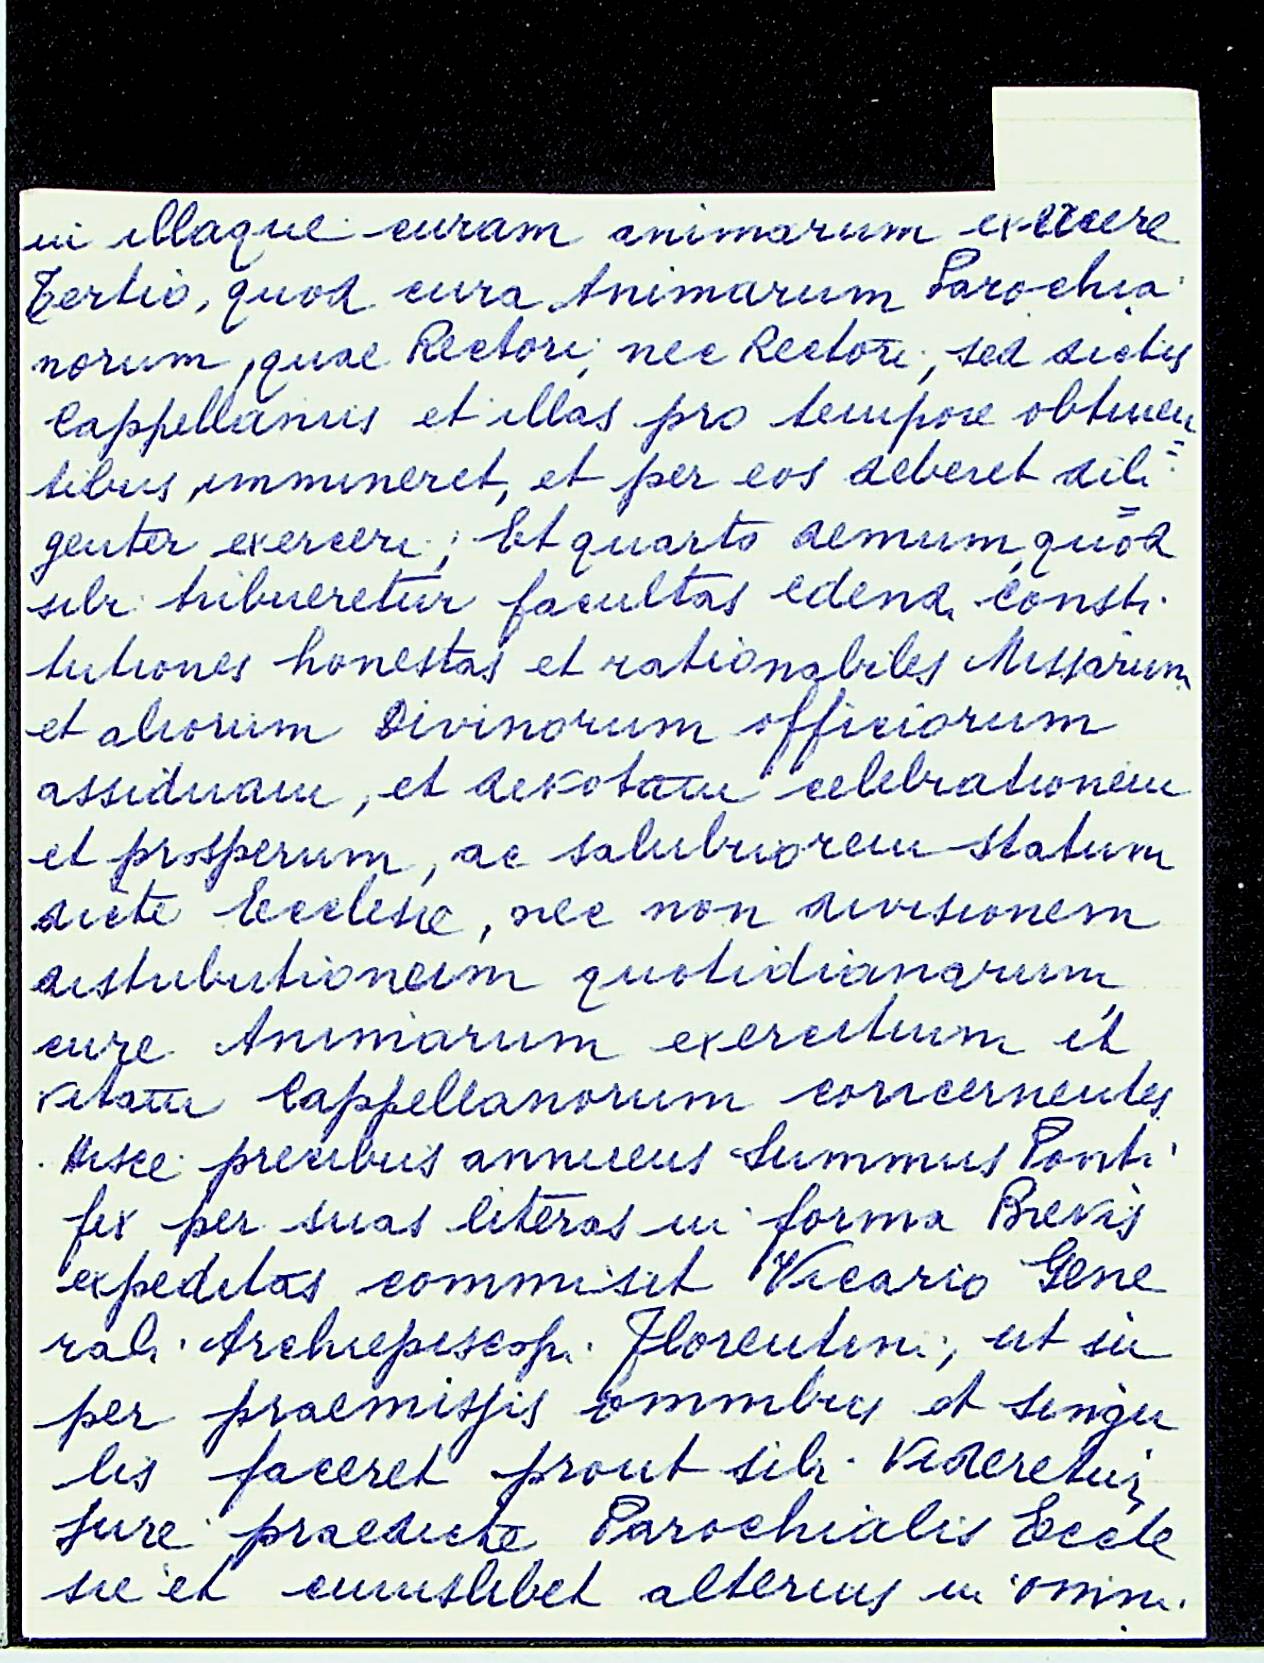 in illaque curam animarum exercere
Tertio, quod cura Animarum Parochia
norum, quae Rectori, nec Rectori, sed dictis
Cappellanis et illas pro tempore obtinen
tibus immineret, et per eos deberet dili=
genter exerceri; Et quarto demum, quod
sibi tribueretur facultas edendi consti
tutiones honestas et rationabiles Missarum
et aliorum Divinorum officiorum
assiduam, et devotam celebrationem
et prosperum, ac salubriorem statum
dicte Ecclesie, nec non divisionem
distributionem quotidianarum,
cure Animarum exercitium et
vitam Cappellanorum concernentes
Hisce precibus annuens Summus Ponti
fex per suas literas in forma Brevis
expeditas commisit Vicario Gene
rali Archiepiscopi Florentini, ut su
per praemissis omnibus et singu
lis faceret prout sibi videretur,
Jure praedicte Parochialis Eccle
sie et cuiuslibet alterius in omni